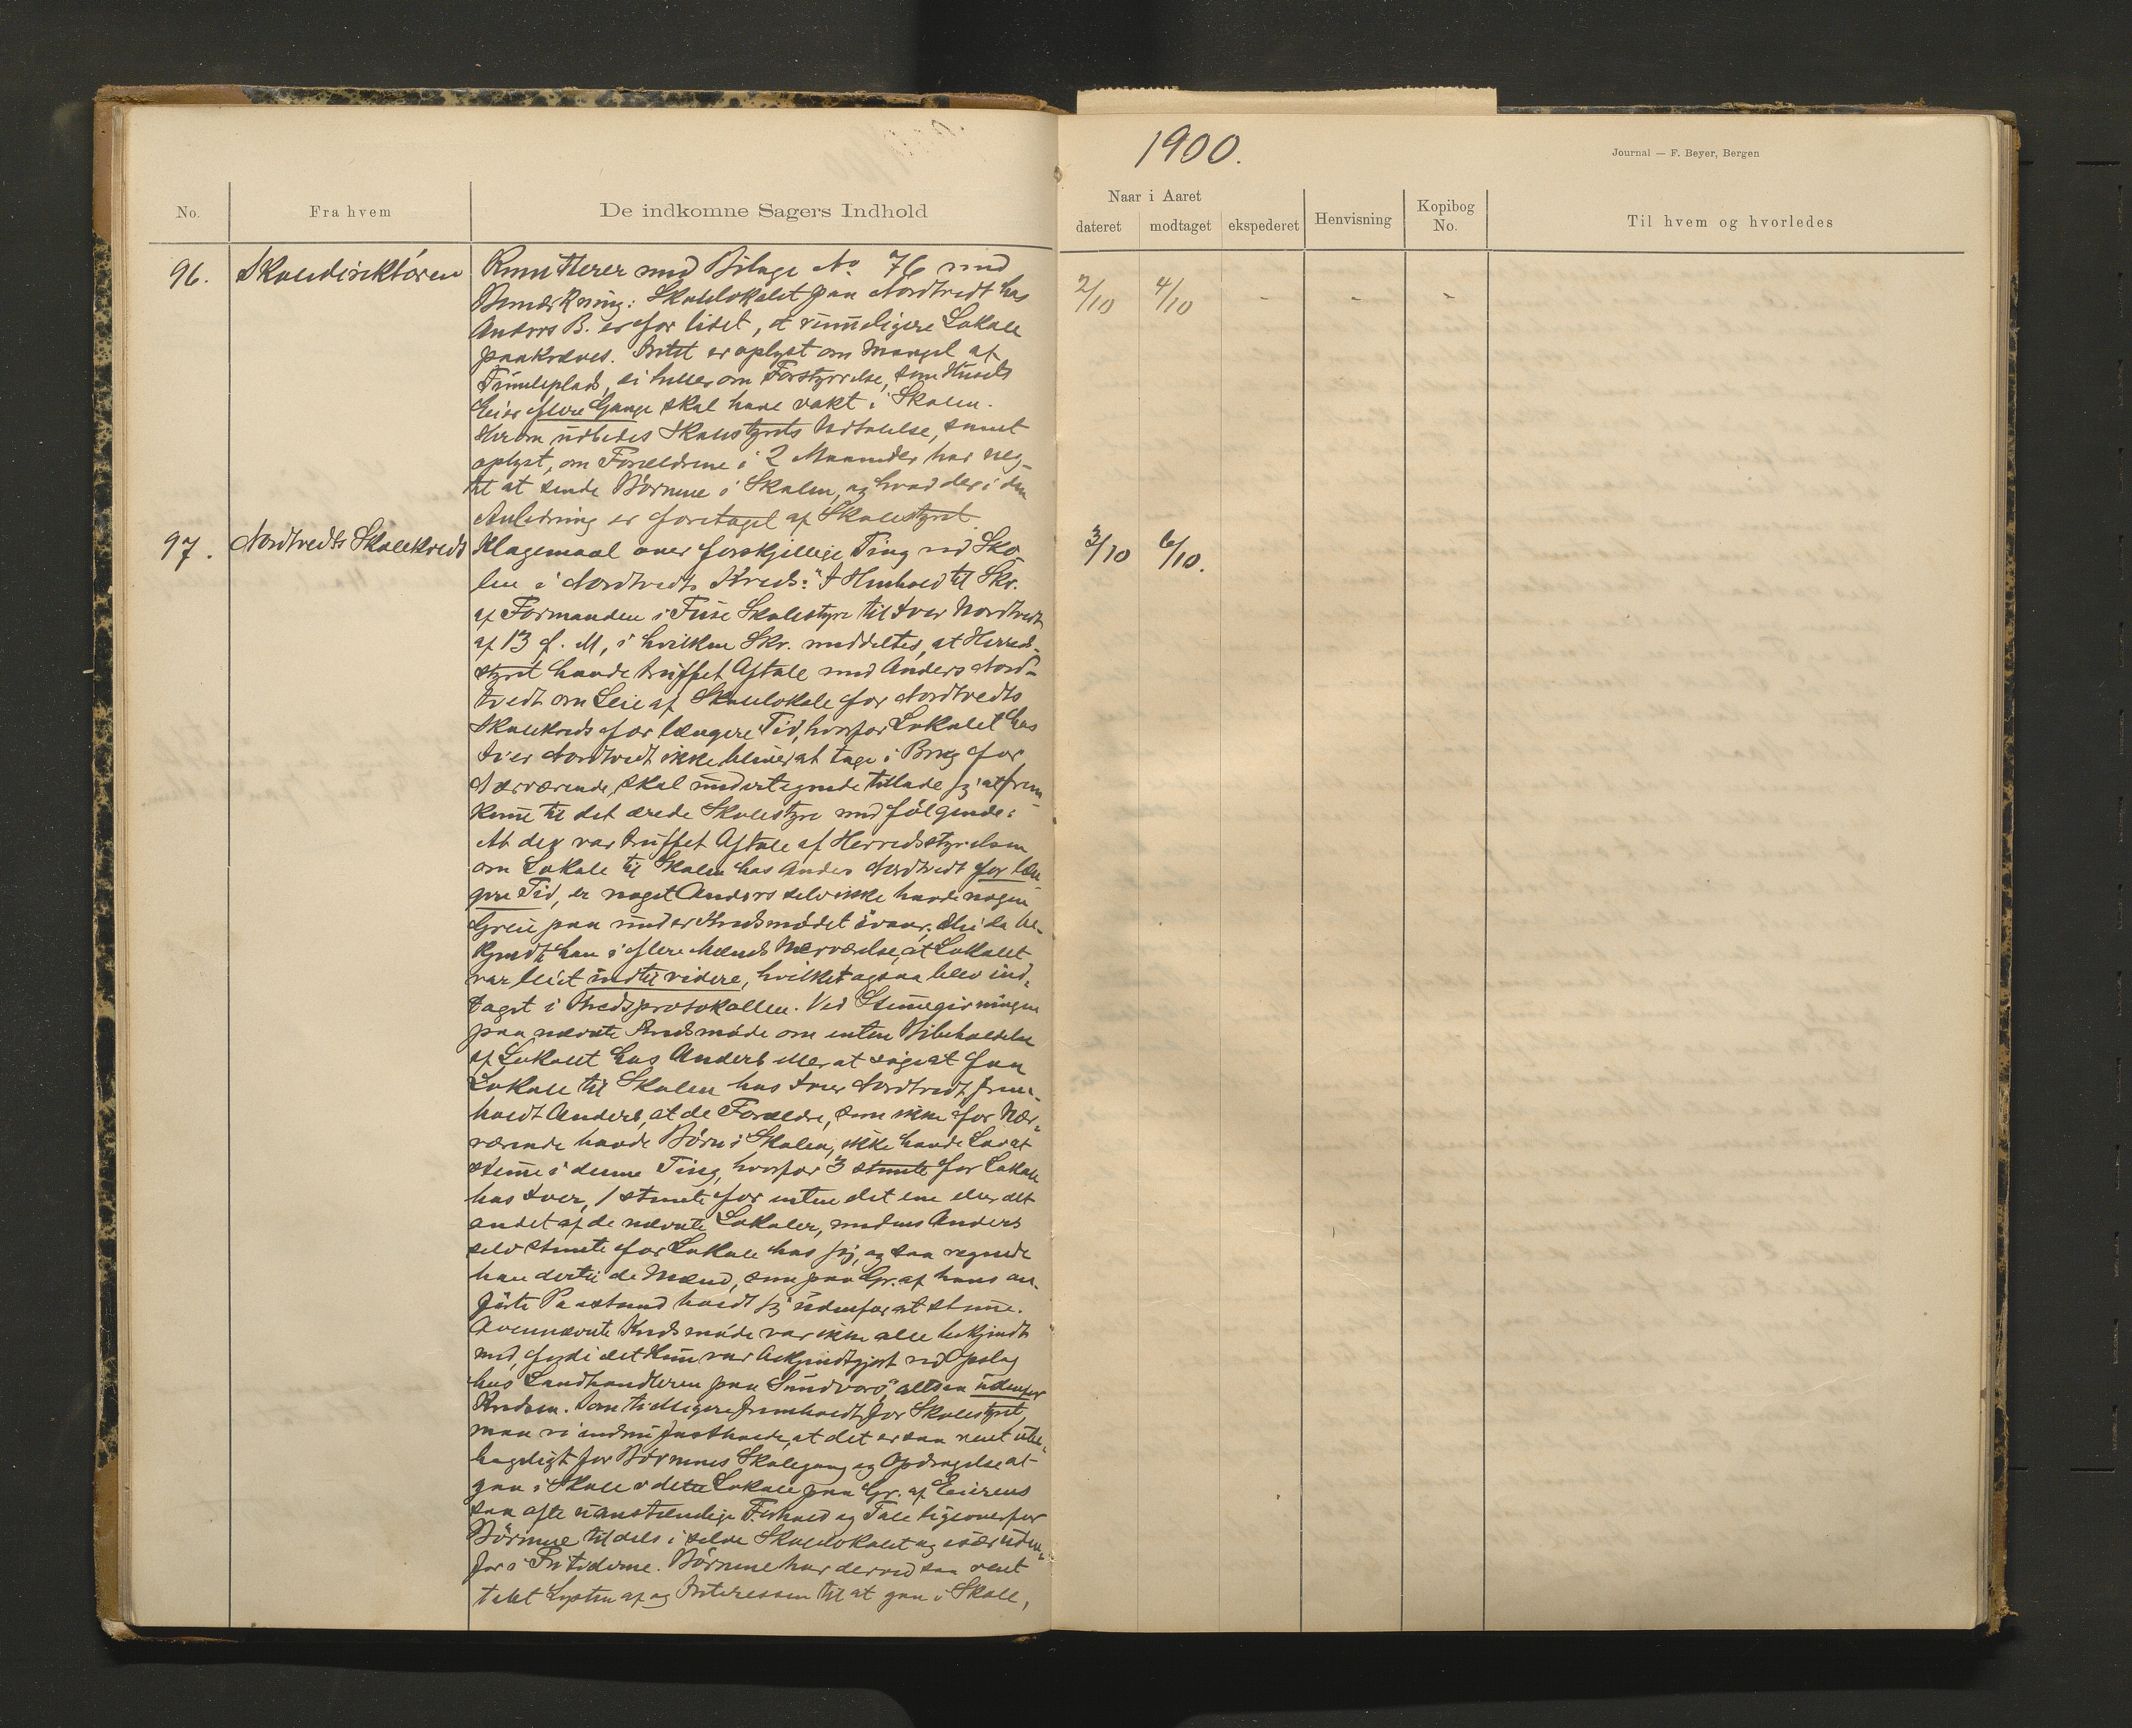 1900.
Journal — F. Beyer, Bergen
No.
Fra hvem
De indkomne Sagers Indhold
Naar i Aaret
dateret
modtaget
ekspederet
Henvisning
Kopibog No.
Til hvem og hvorledes
96. Skoledirektøren
Remitterer med Bilage No 76 med
2/10 4/10 - - -
Bemærkning: Skolelokalet paa Nordtvedt hos
Anders B. er for lidet, et rummeligere Lokale
paakræves. Intet er oplyst om Mangel af
Tumleplads, ei heller om Forstyrrelse, som Husets
Eier flere Gange skal have vakt i Skolen.
Herom udbedes Skolestyrets Udtalelse, samt
oplyst, om Forældrene i 2 Maaneder har neg-
tet at sende Børnene i Skolen, og hvad der i den
Anledning er foretaget af Skolestyret.
97. Nordtvedts Skolekreds
Klagemaal over forskjellige Ting ved Sko-
3/10 6/10.
len i Nordtvedts Kreds: "I Henhold til Skr.
af Formanden i Fuse Skolestyre til Iver Nordtvedt
af 13 f. M, i hvilken Skr. meddeltes, at Herred-
styret havde truffet Aftale med Anders Nord-
tvedt om Leie af Skolelokale for Nordtvedts
Skolekreds for længere Tid, hvorfor Lokalet hos
Iver Nordtvedt ikke bliver at tage i Brug for
Nærværende, skal undertegnede tillade sig at frem-
komme til det ærede Skolestyre med følgende:
At der var truffet Aftale af Herredsstyrelsen
om Lokale til Skolen hos Anders Nordtvedt for læn-
gere Tid, er noget Anders selv ikke havde nogen
Greie paa under Kredsmødet ivaar; thi da be-
kjendte han i flere Mænds Nærværelse, at Lokalet
var leiet indtil videre, hvilket ogsaa blev ind-
taget i Kredsprotokollen. Ved Stemmegivningen
paa nævnte Kredsmøde om enten Bibeholdelse
af Lokalet hos Anders eller at søge at faa
Lokale til Skolen hos Iver Nordtvedt, frem-
holdt Anders, at de Forældre, som ikke for Nær-
værende havde Børn i Skolen, ikke havde Lov at
stemme i denne Ting, hvorfor 3 stemte for Lokale
hos Iver, 1 stemte for enten det ene eller det
andet af de nævnte Lokaler, medens Anders
selv stemte for Lokale hos sig, og saa regnede
han dertil de Mænd, som paa Gr. af hans an-
førte Paastand holdt sig udenfor at stemme.
Ovennævnte Kredsmøde var ikke alle bekjendt
med, fordi det kun var bekjendtgjort ved Opslag
hos Landhandleren paa Sundvor, altsaa udenfor
Kredsen. Som tidligere fremholdt for Skolestyret,
maa vi endnu fastholde, at det er saa rent ube-
hageligt for Børnenes Skolegang og Opdragelse at
gaa i Skole i dette Lokale paa Gr. af Eierens
saa ofte uanstændige Forhold og Tale ligeoverfor
Børnene tildels i selve Skolelokalet og især uden-
for i Fritiderne. Børnene har derved saa rent
tabt Lysten af og Interessen til at gaa i Skole,